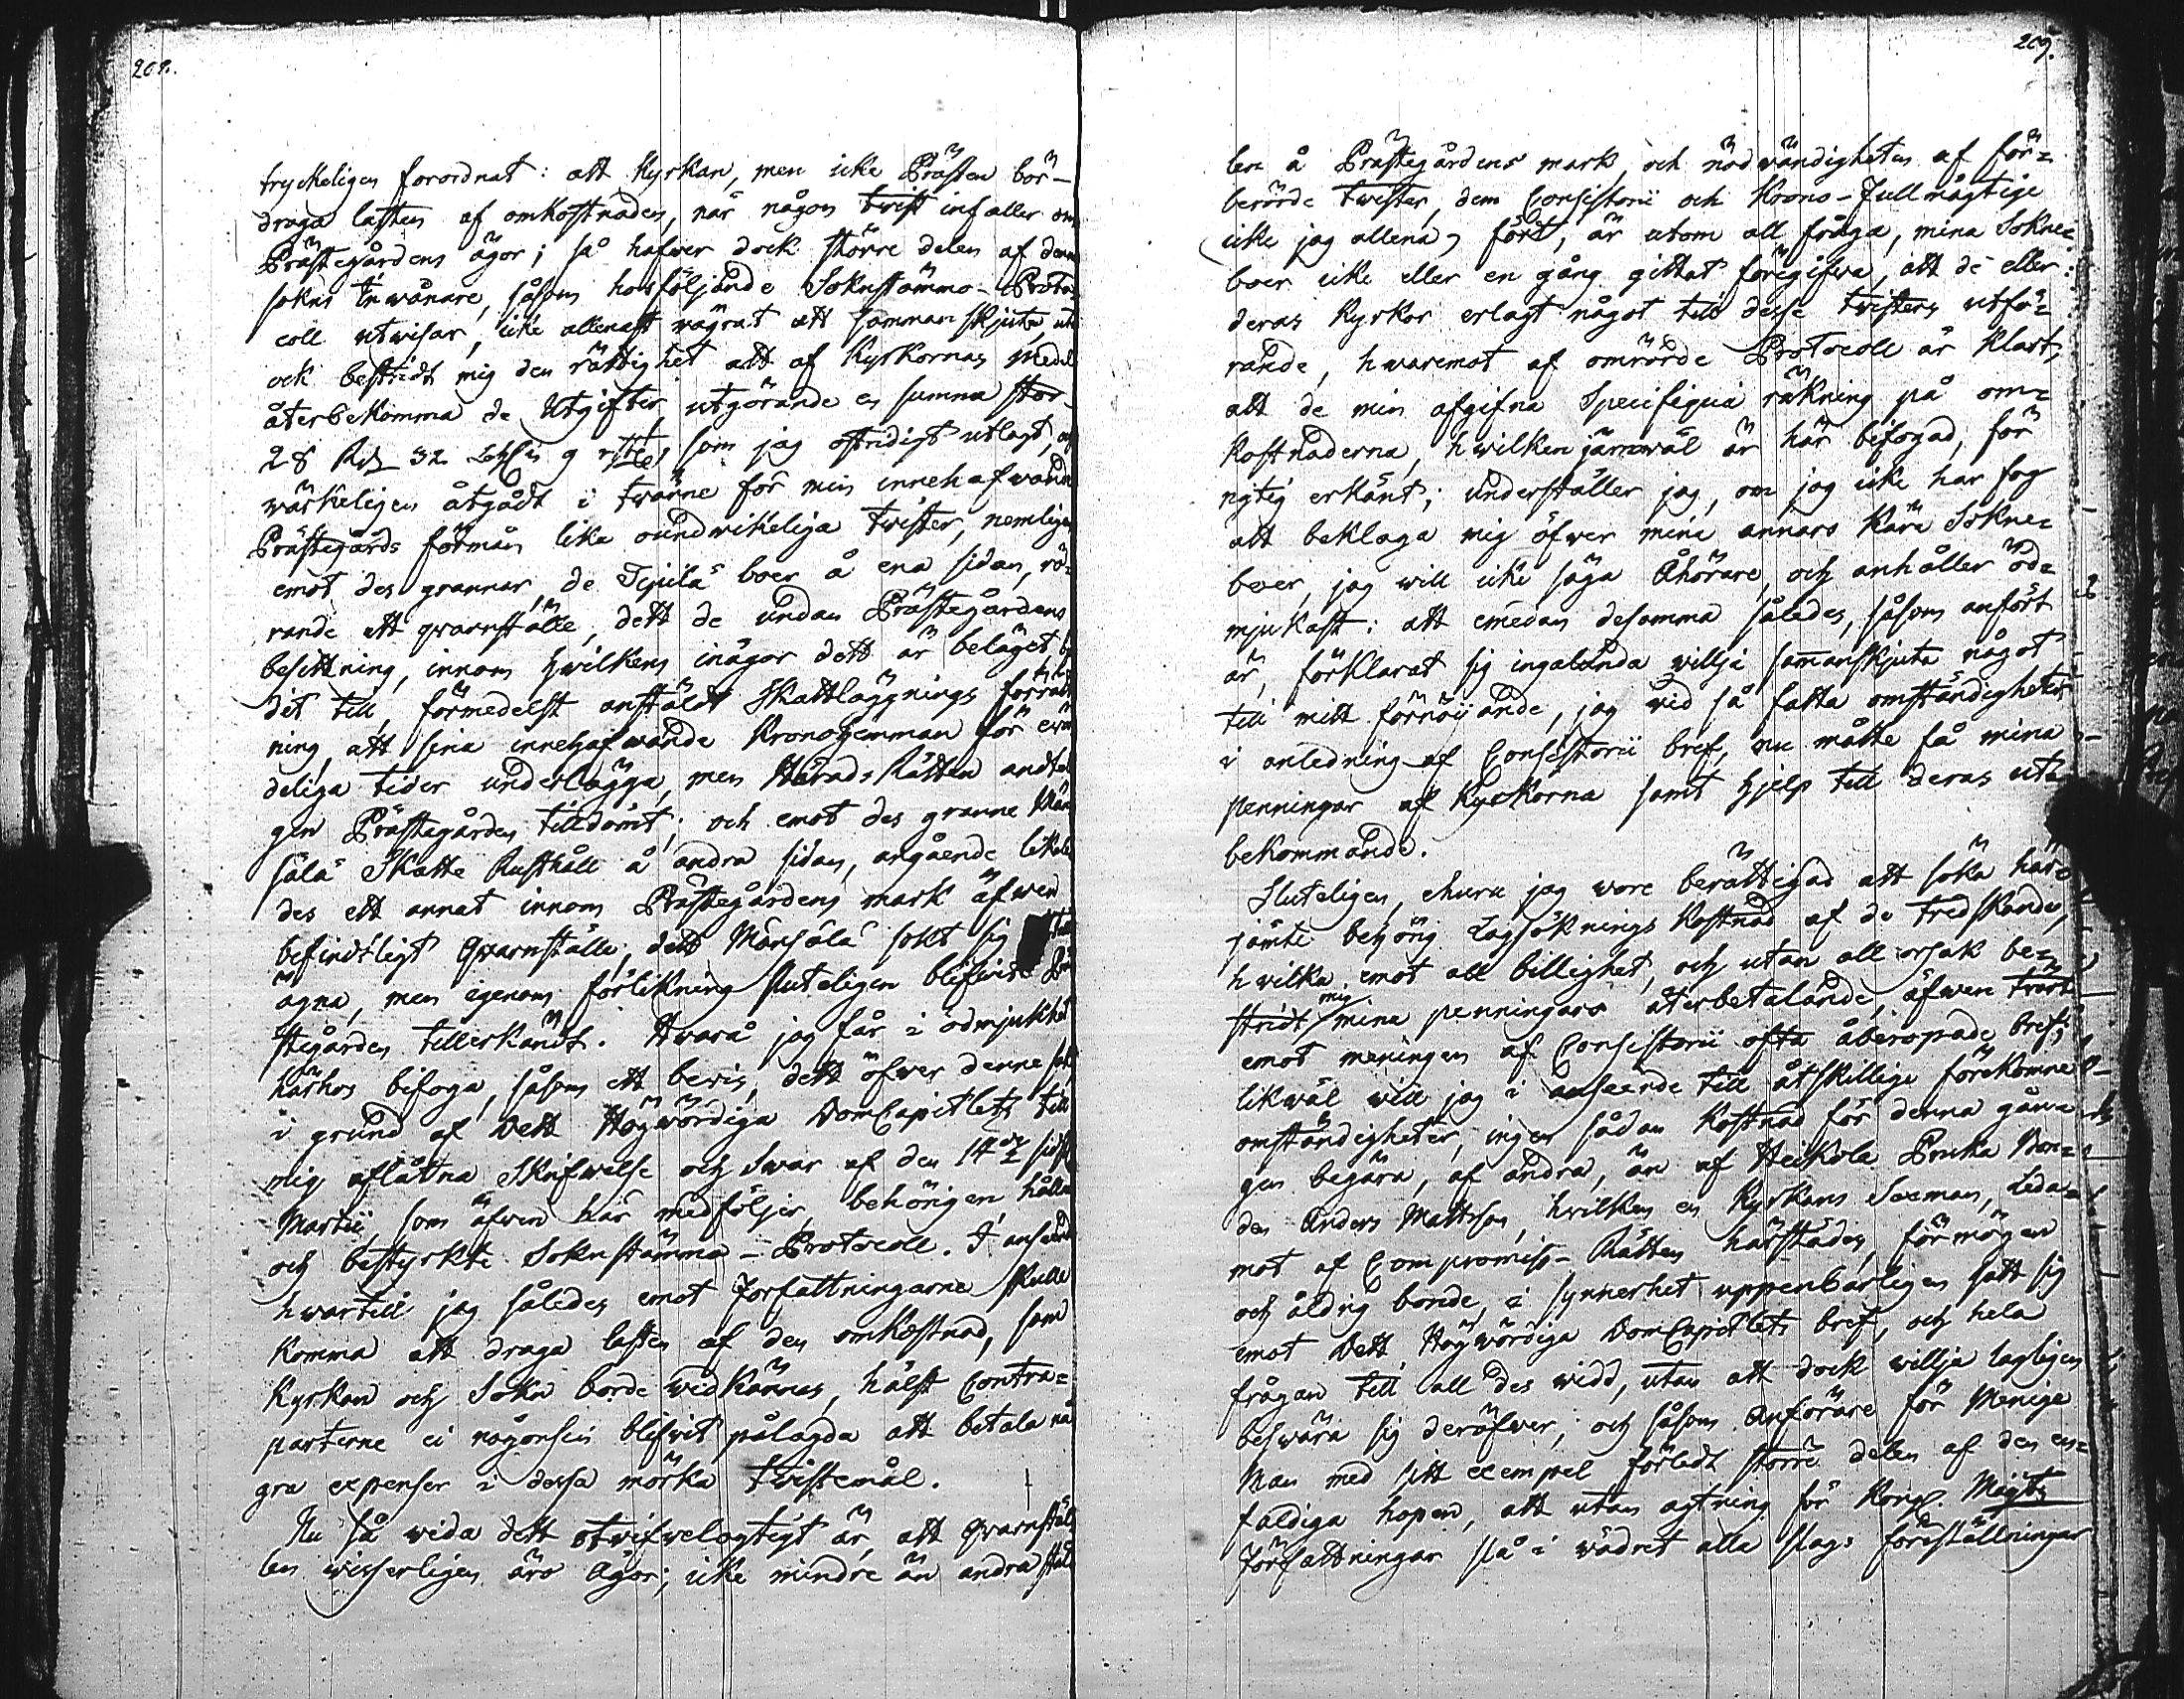 208.
tryckeligen forordnat: att Kyrkan, men icke Prästen bör-
draga lasten af omkostnaden, när någon twist infaller om
Prästegårdens ägor; så hafwer dock större delen af denna
sokns Inwånare, såsom hosföljande Soknstämmo-Proto-
coll utwisar, icke allenast wägrat att sammanskjuta, utan
ock bestridt mig den rättighet att af Kyrkornas medel
återbekomma de Utgifter, utgörande en summa stor
28 Rd 32 9 rst som jag ostridigt utlagt,
wärkeligen åtgådt i twänne för min innehafwande
Prästegårds förmån lika oundwikeliga twister, nemligen
emot des grannar, de Tipilä boer å ena sidan, rö-
rande ett qwarnställe, dett de undan Prästegårdens
besittning, innom hwilkens inägor dett är beläget,
dit till, förmedelst anstäldt Skattläggnings förrätt
ning, att sina innehafwande Kronohemman för ewär
deliga tider underlägga, men HäradsRätten andte
gen Prästegården tilldömt; och emot des granne Mär
sälä Skatte Rusthåll å andra sidan, angående likale
des ett annat innom Prästegårdens mark äfwen
befindtligt qwarnställe, dett Märsälä sökt sig till
ägna, men igenom förlikning sluteligen blifwit Prä
stegården tillerkändt. Hwarå jag får i ödmjukhet
härhos bifoga, såsom ett bevis, dett öfwer denne sak
i grund af Dett Högwördiga DomCapitlets till
mig aflåtna Skrifwelse och Swar af den 14de sistl.
Martii, som äfwen här medföljer, behörigen hållne
och bestyrkte Soknstämma-Protocoll. I anseende
hwartill jag således emot Författningarne skulle
komma att draga lasten af den omkostnad, som
Kyrkan och Sokn borde widkännas, hälst Contra-
parterne ei någonsin blifwit pålagda att betala nå
gra expenser i dessa mörka twistemål.
Nu så wida dett otwifwelagtigt är, att qwarnstäl
len wisserligen äro Ägor; icke mindre än andra stäl

209.
len å Prästegårdens mark, och nödwändigheten af för-
berörde twister, dem Consistorii och Krono-Fullmägtige
(icke jag allena) fört, är utom all fråga, mina Sokne-
boer icke eller en gång gittat föregifwa, att de eller
deras Kyrkor erlagt något till desse twisters utfö-
rande, hwaremot af omrörde Protocoll är klart,
att de min afgifna Specifiqua räkning på om-
kostnaderna, hwilken jämwäl är här bifogad, för
rigtig erkänt; underställer jag, om jag icke har fog
att beklaga mig öfwer mina annars kära Sokne-
boer, jag will icke säga Åhörare, och anhåller öd-
mjukast: att emedan desamma således, såsom anfört
är, förklarat sig ingalunda willja samanskjuta något
till mitt förnöijande, jag wid så fatta omständigheter
i anledning af Consistorii bref, nu måtte få mina
penningar af Kyrkorna samt hjelp till deras ut-
bekommande.
Sluteligen, ehuru jag wore berättigad att söka här-
jämte behörig Lagsöknings kostnad af de tredskande,
hwilka emot all billighet, och utan all orsak be-
stridt mig mina penningars återbetalande, äfwen twärt
emot meningen af Consistorii ofta åberopade bref;
likwäl will jag i anseende till åtskillige förekomne
omständigheter, ingen sådan kostnad för denna gån-
gen begära, af andra, än af Heikola Pruka Bon-
den Anders Mattsson, hwilken en Kyrkans Sexman, Leda-
mot af Compromiss-Rätten härstädes, förmögen
och åldrig bonde, i synnerhet uppenbarligen satt sig
emot Dett Högwördiga DomCapitlets bref, och hela
frågan till all des widd, utan att dock willja lagligen
beswära sig deröfwer; och såsom Anförare för Menige
Man med sitt exempel förledt större delen af den en-
faldiga hopen, att utan agtning för Kongl. Maijts
Författningar slå i wädret alla slags föreställningar